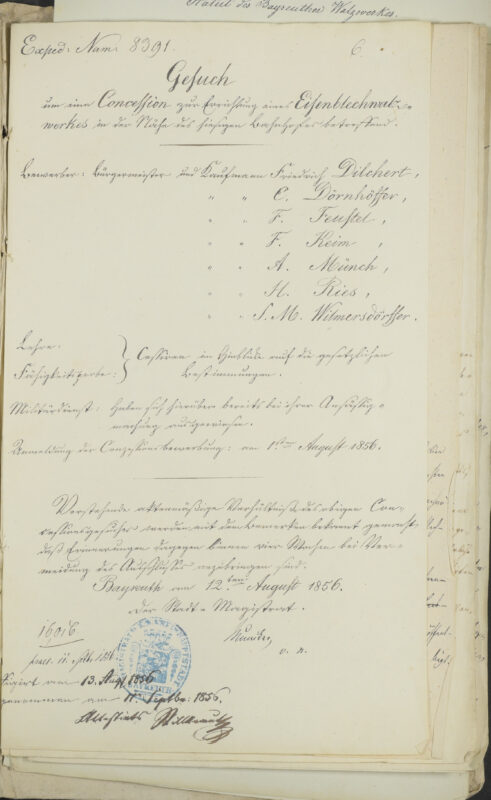 Statut des Bayreuther Walzwerkes.
Exped: Num: 8391.
6.
Gesuch
um eine Concession zur Errichtung eines Eisenblechwalz-
werkes in der Nähe des hiesigen Bahnhofes betreffend.
Bewerber: Bürgermeister und Kaufmann Friedrich Dilchert,
" " C. Dörnhöffer,
" " F. Feustel,
" " F. Keim,
" " A. Münch,
" " H. Ries,
" " S. M. Wilmersdörffer.
Lehre:
Fähigkeitsprobe: } Cessiren in Hinblick auf die gesetzlichen
Bestimmungen.
Militärdienst: Haben sich hierüber bereits bei ihrer Ansäßig-
machung ausgewiesen.
Anmeldung der Conzessionsbewerbung: am 1ten August 1856.
Vorstehende aktenmäßige Verhältniße des obigen Con-
cessionsgesuches werden mit dem Bemerken bekannt gemacht,
daß Erinnerungen dagegen binnen vier Wochen bei Ver-
meidung des Ausschlußes anzubringen sind.
Bayreuth am 12ten August 1856.
Der Stadt-Magistrat.
Muncker,
v. n.
16016
am 13. Aug 1856
abgenommen am 11. Septbr. 1856.